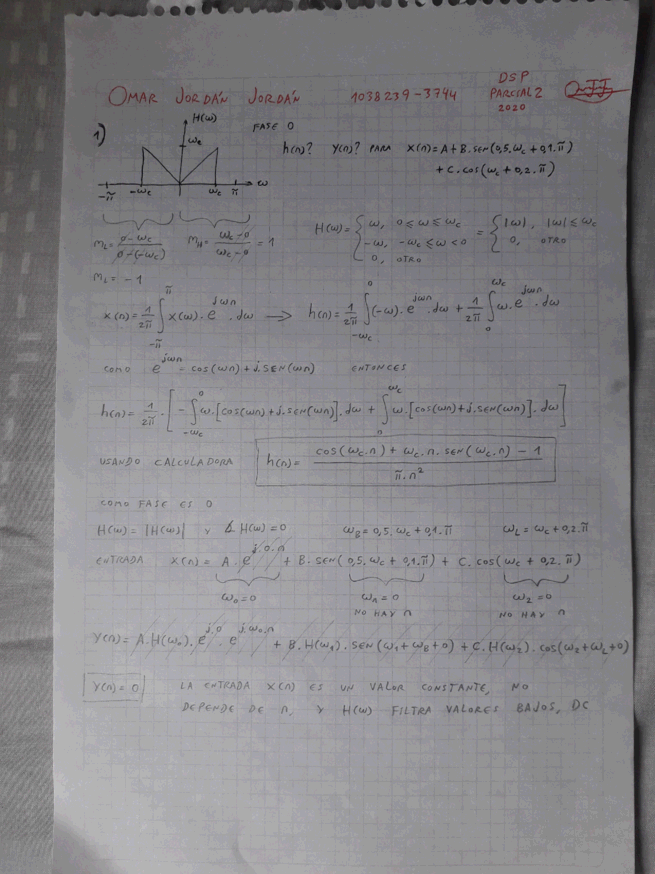 OMAR JORDÁN JORDÁN 1038239-3744 DSP PARCIAL 2 2020
1) H(ω) FASE 0 h(n)? Y(n)? PARA X(n)=A+B.SEN(0,5.ωc+0,1.π̃)
ωc + C.cos(ωc+0,2.π̃)
-π̃ -ωc ωc π̃ ω
mL = (0-ωc)/(0-(-ωc)) mH = (ωc-0)/(ωc-0) = 1 H(ω)= { ω, 0≤ω≤ωc; -ω, -ωc≤ω<0; 0, OTRO = { |ω|, |ω|≤ωc; 0, OTRO
mL = -1
x(n)= 1/2π̃ ∫_{-π̃}^{π̃} X(ω).e^{jωn}.dω → h(n)= 1/2π̃ ∫_{-ωc}^{0} (-ω).e^{jωn}.dω + 1/2π̃ ∫_{0}^{ωc} ω.e^{jωn}.dω
COMO e^{jωn} = cos(ωn)+j.SEN(ωn) ENTONCES
h(n)= 1/2π̃ . [ -∫_{-ωc}^{0} ω.[cos(ωn)+j.SEN(ωn)].dω + ∫_{0}^{ωc} ω.[cos(ωn)+j.SEN(ωn)].dω ]
USANDO CALCULADORA h(n)= (cos(ωc.n)+ωc.n.SEN(ωc.n) - 1)/(π̃.n²)
COMO FASE ES 0
H(ω)=|H(ω)| Y ∡H(ω)=0 ωB=0,5.ωc+0,1.π̃ ωL=ωc+0,2.π̃
ENTRADA X(n)= A.e^{j.0.n} + B.SEN(0,5.ωc+0,1.π̃) + C.cos(ωc+0,2.π̃)
ω0=0 ω1=0 ω2=0
NO HAY n NO HAY n
Y(n)= A.H(ω0).e^{j.0}.e^{j.ω0.n} + B.H(ω1).SEN(ω1+ωB+0)+C.H(ω2).cos(ω2+ωL+0)
Y(n)=0 LA ENTRADA X(n) ES UN VALOR CONSTANTE, NO
DEPENDE DE n, Y H(ω) FILTRA VALORES BAJOS, DC